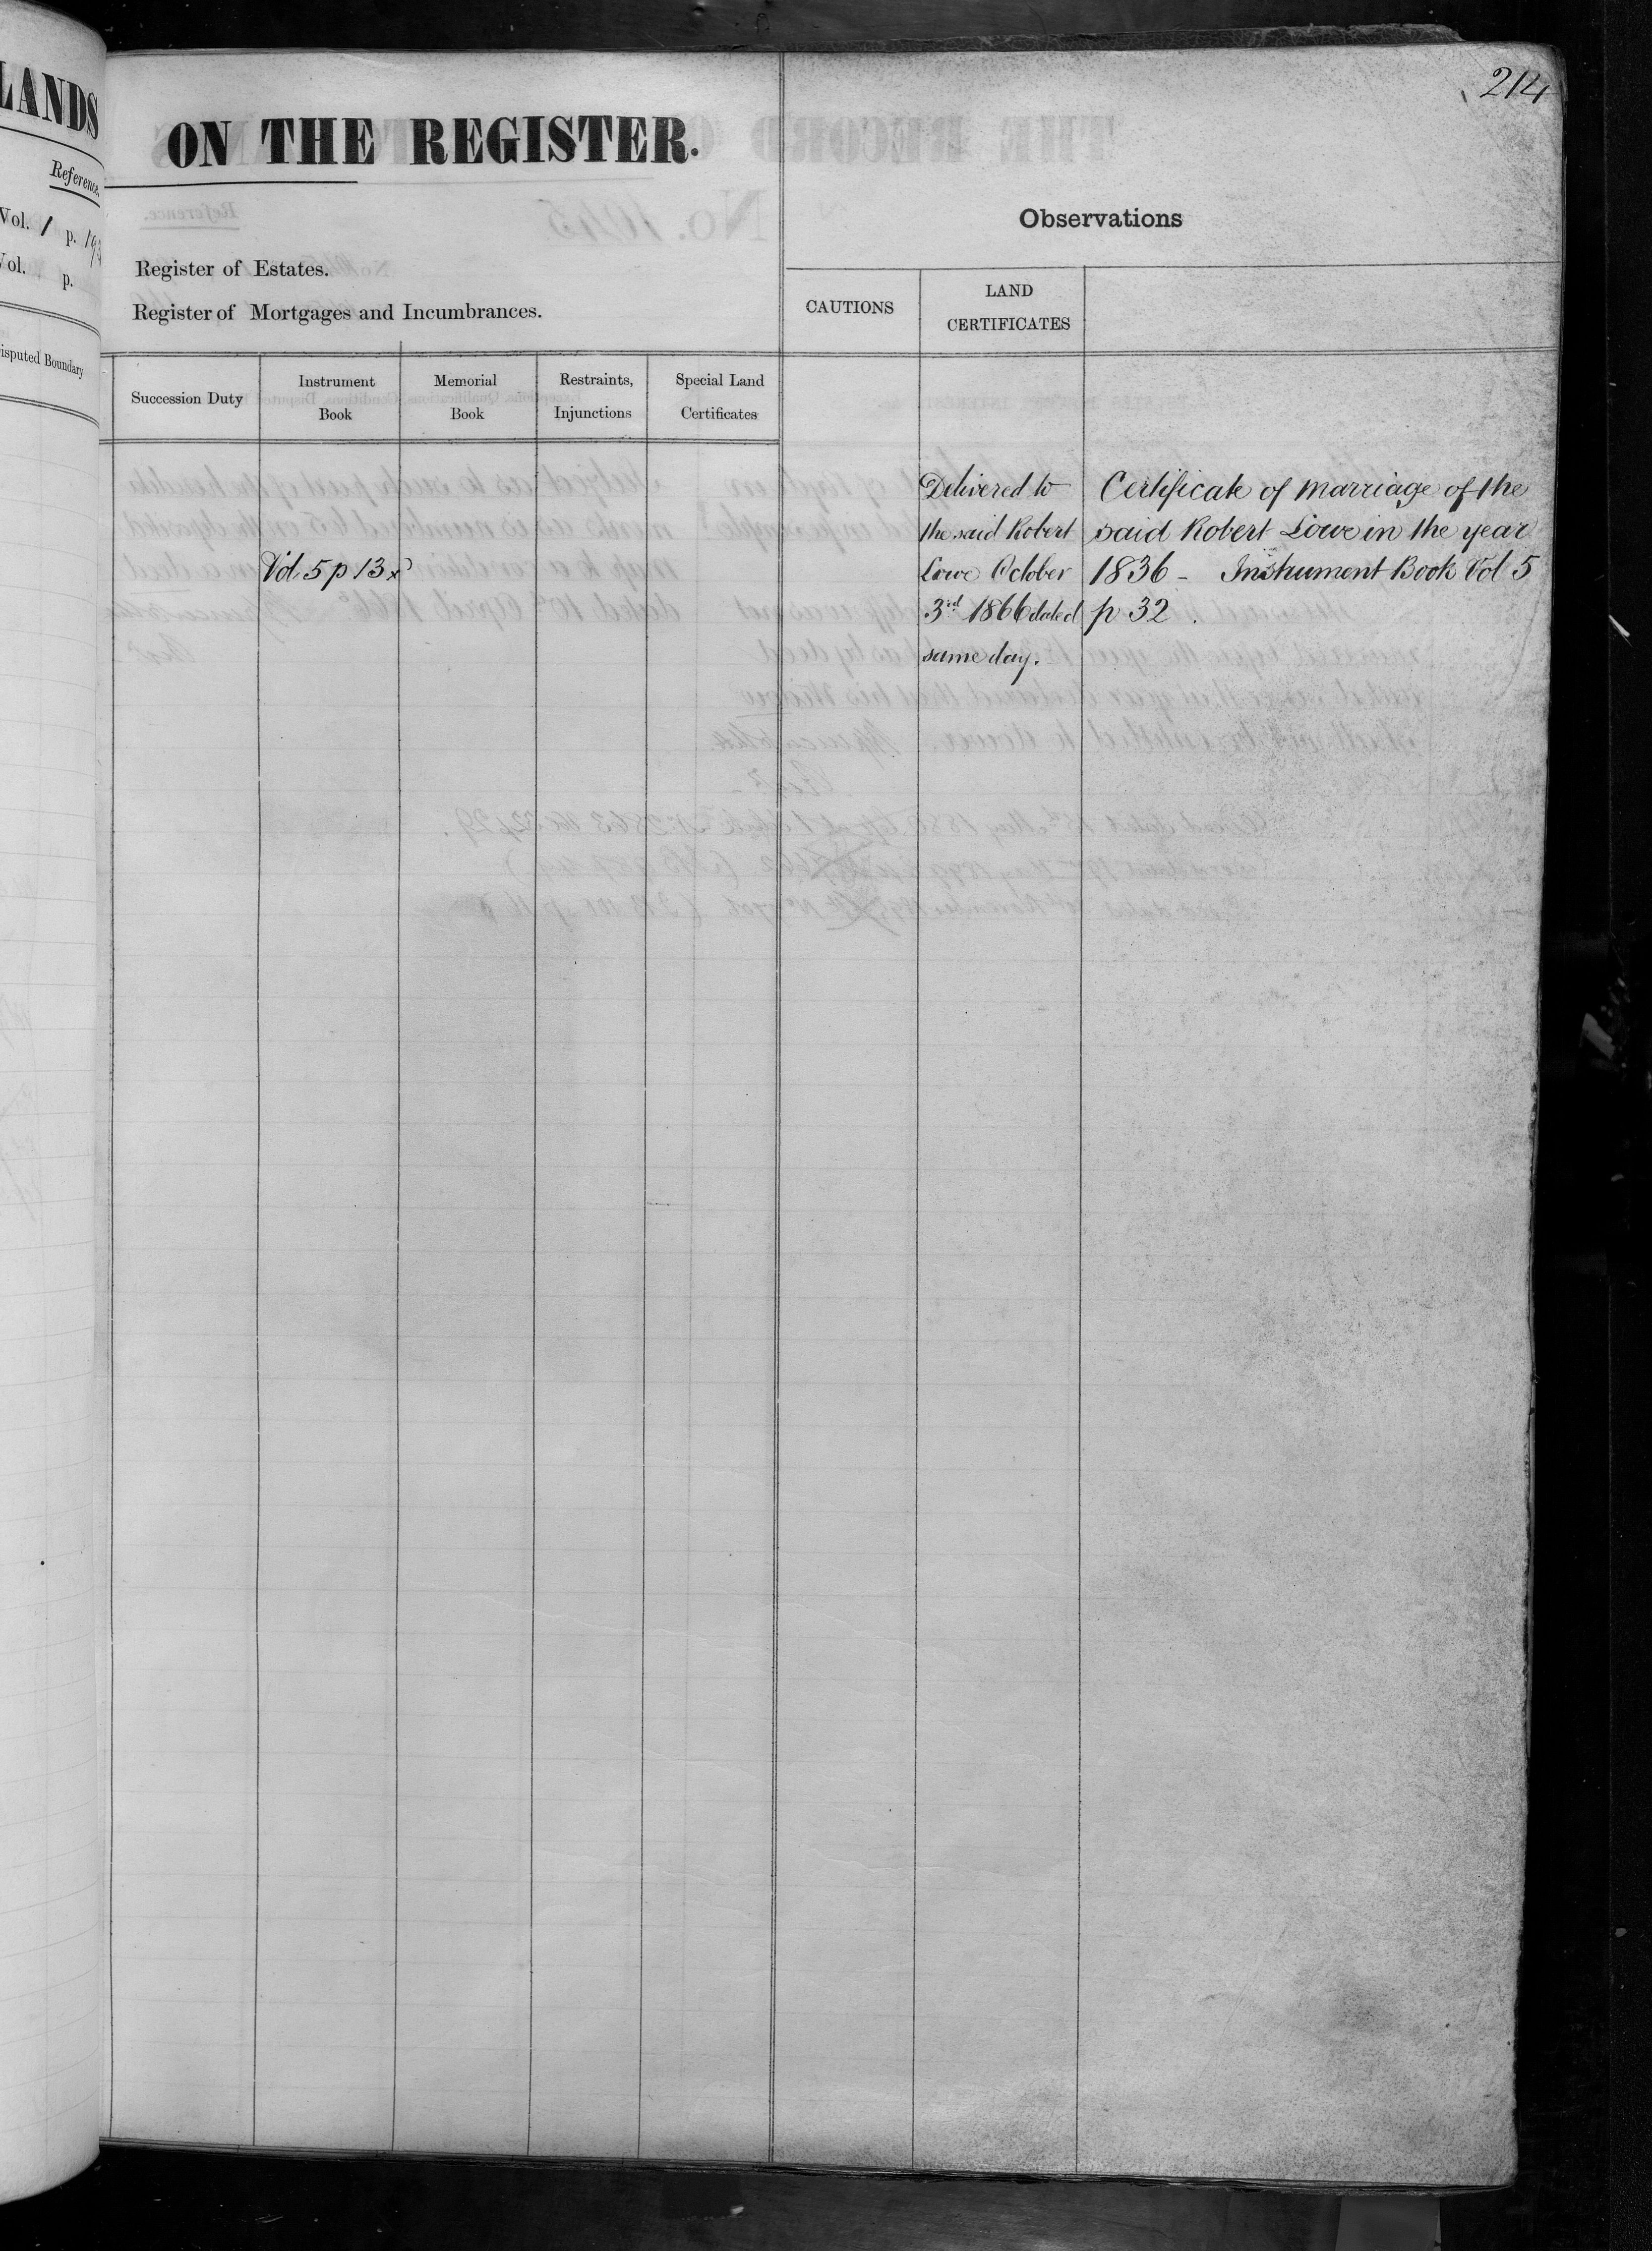 214
LANDS
Reference.
Vol. 1 p.
Vol. p.
Disputed Boundary
ON THE REGISTER.
Register of Estates.
Register of Mortgages and Incumbrances.
Observations
CAUTIONS
LAND
CERTIFICATES
Succession Duty
Instrument
Book
Memorial
Book
Restraints,
Injunctions
Special Land
Certificates
Vol 5 p 13
Delivered to
the said Robert
Lowe October
3rd 1866 dated
same day.
Certificate of marriage of the
said Robert Lowe in the year
1836 - Instrument Book Vol 5
p 32.